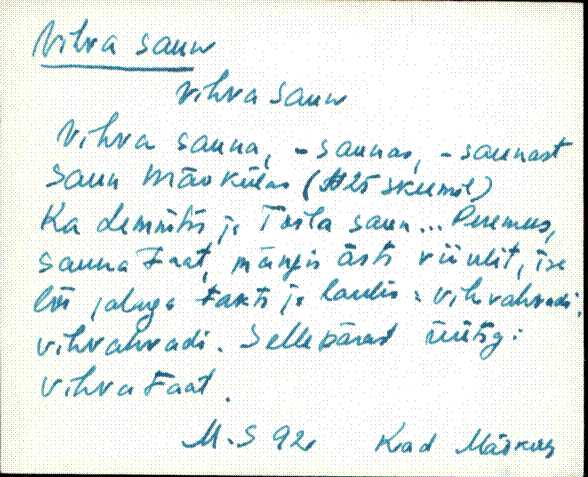 Vihva saun
Vihva saun
Vihva sauna, -saunas, -saunast
Saun Mäo külas (#25 skeemil)
Ka Lemmiti ja Toila saun... Peremees,
sauna Faat, mängis ästi viiulit, ise
lõi jaluga takti ja laulis: vihvahvadi,
vihvahvadi. Sellepärast üütigi:
Vihva Faat.
M.S 92.